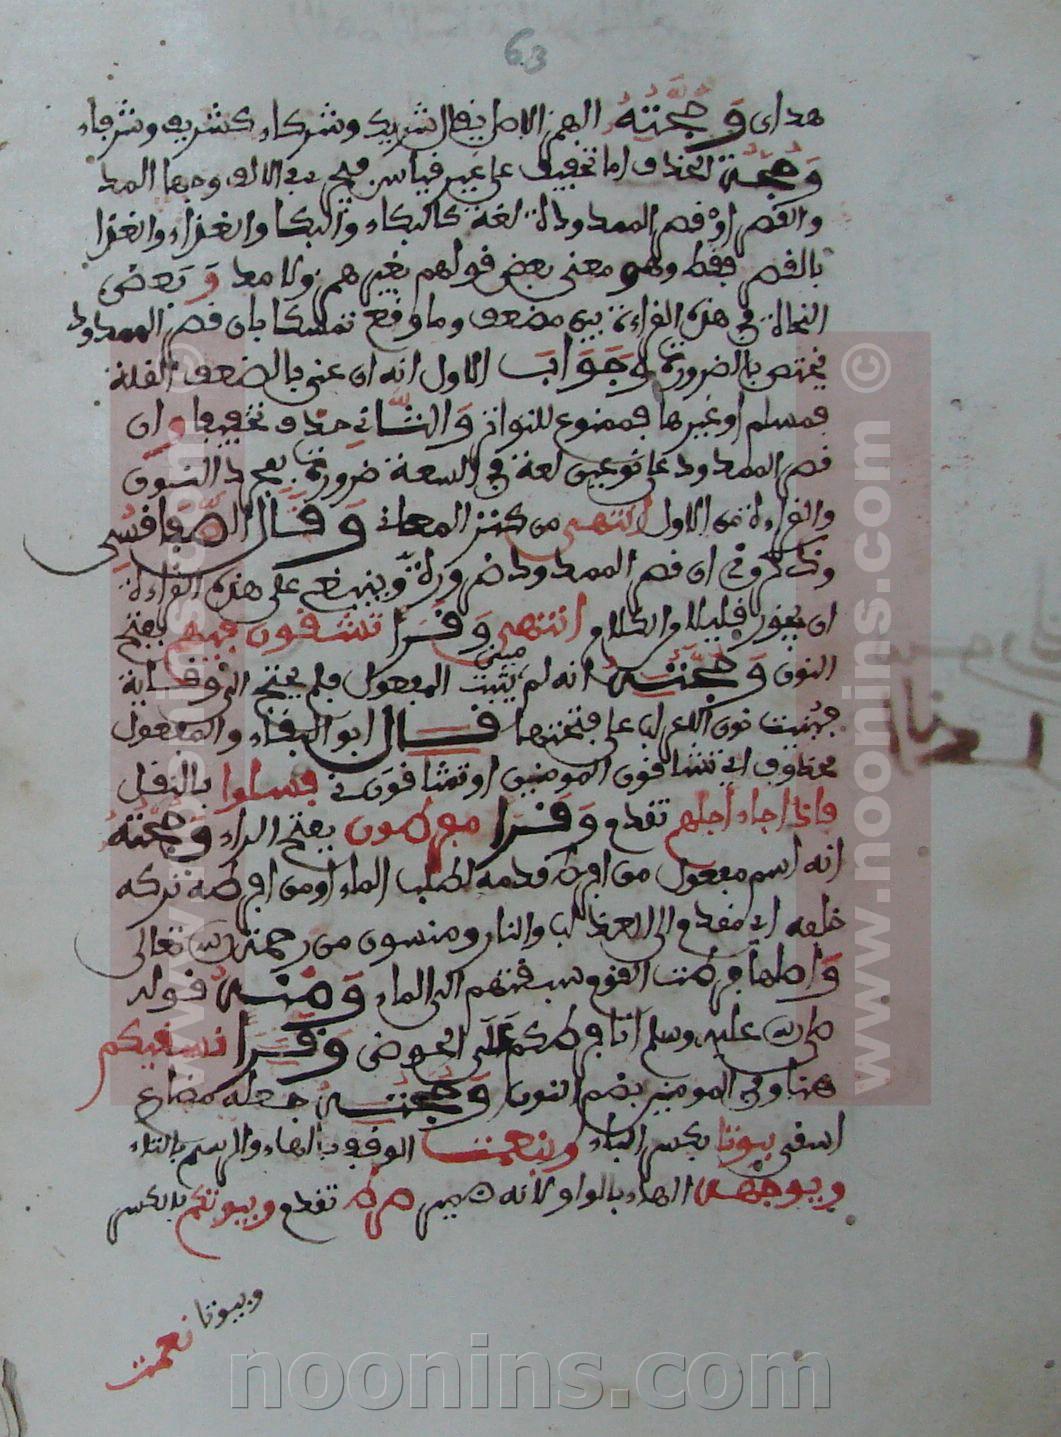 63
هذا اي وَحُجَّتُهُ الهمز الاصل يقال شريك وشركاء كشريف وشرفاء
وَحُجَّة الحذف اما تخفيف على غير قياس فيجيء في الالف وجها المد
والقصر او قصر الممدود لغة كالبكاء والبكا والغزاء والغزا
بالقصر فقط وهو معنى بعض قولهم بغير همز ولا مد وَبَعض
النحاة في هذه القراءة بين مضعف وما وقع تمسكا بان قصر الممدود
يختص بالضرورة وَجَوَاب الاول انه ان عنى بالضعف القلة
فمسلم او غيرها فممنوع للتواتر وَالثَّاني حذف تخفيفا وان
قصر الممدود على نوعين لغة في السعة ضرورة
والقراءة من الاول انتهى من كنز المعاني وَقَال الصَّفاقسي
وذكروا في ان قصر الممدود ضرورة وينبغي على هذه القراءة
ان يجوز قليلا والكلام انتهى وَقَرَأ تشقون فيهم بفتح
النون وَحُجَّتُهُ انه لم يثبت المفعول فلم يحتج الى وقاية
مبني
فبنيت نون الاعراب على فتحتها قَال ابو البقاء والمفعول
محذوف اي تشاقون المومنين او تشاقونني فسلوا بالنقل
فاذا جاء اجلهم تقدم وَقَرَأ مفرطون بفتح الراء وَحُجَّتُهُ
انه اسم مفعول من افرط قدمه لطلب الماء او من افرطه تركه
خلفه اي مقدمو الى العذاب والنار ومنسون من رحمة الله تعالى
وَاصلها فرطت القوم سبقتهم الى الماء وَمنه قوله
صلى الله عليه وسلم انا فرطكم عَلَى الحوض وَقَرَأ نسقيكم
هنا وفي المومنين بضم النون وَحُجَّتُهُ جعله مضارع
اسقى بيوتا بكسر الباء وبنعمت الوقف بالهاء والرسم بالتاء
ويوجهه الهاء بالواو لانه ضمير صراط تقدم وبيوتكم بالكسر
وبيوتا نعمت
noonins.com
www.noonins.com ©
www.noonins.com